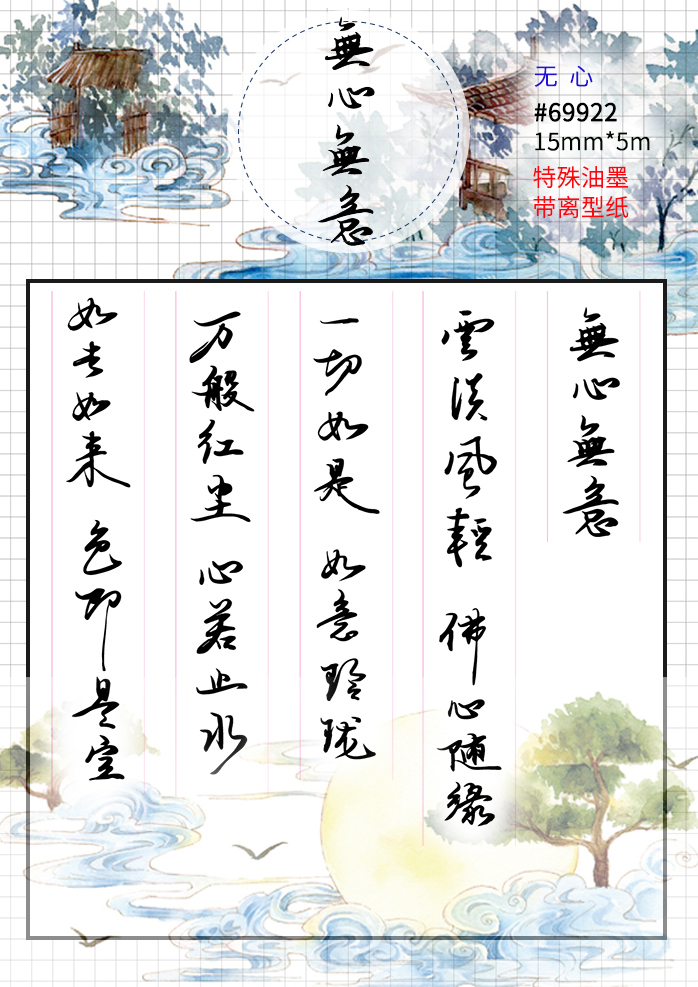 無心無意
无心
#69922
15mm*5m
特殊油墨
带离型纸
無心無意
雲淡風輕 佛心随緣
一切如是 如意玲珑
万般红尘 心若止水
如去如来 色即是空